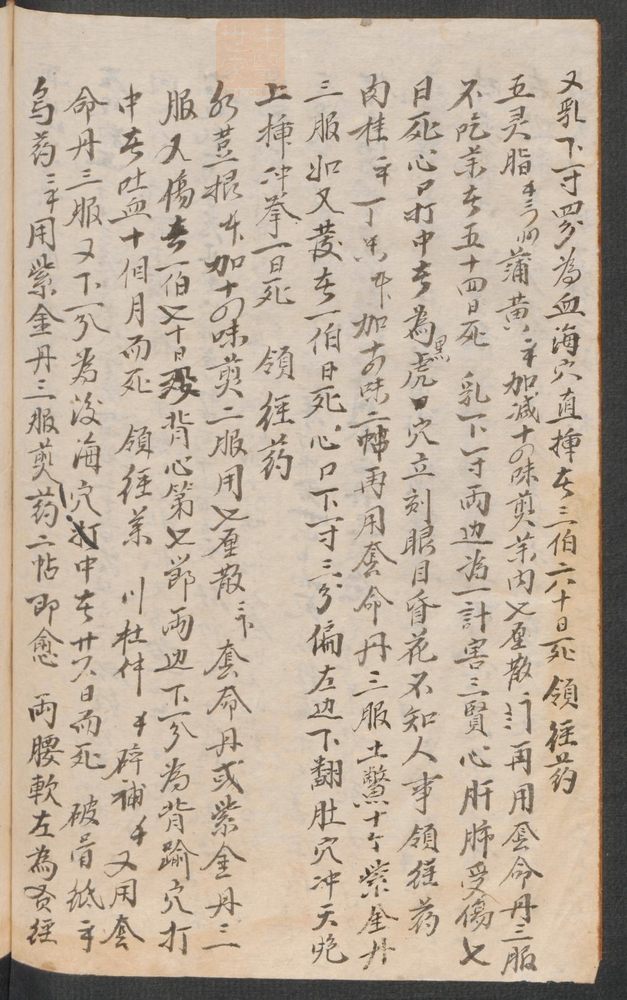 又乳下一寸四分為血海穴直揷㐮三伯六十日死 領經药
五灵脂 蒲黄 加减十四味煎葯内七厘散 再用奎命丹三服
不吃葯㐮五十四日死 乳下一寸两边為一計害三賢心肝肺受傷七
日死心口打中㐮為黑虎口穴立刻眼目昏花不知人事 領經药
肉桂 丁香 加十四味二帖再用奎命丹三服土鱉十个紫金丹
三服如又蕟㐮一伯日死心口下一寸三分偏左边下翻肚穴冲天炮
上揷冲拳一日死 領經药
紅荳根 加十四味煎二服用七厘散 奎命丹或紫金丹三
服又傷㐮一伯七十日 背心第七節两边下一分為背踰穴打
中㐮吐血十個月而死 領經葯 川杜仲 碎補 又用奎
命丹三服又下一分为後海穴打中㐮卅六日而死 破骨紙
烏药 用紫金丹三服煎药二帖即愈 两腰軟左為肾經